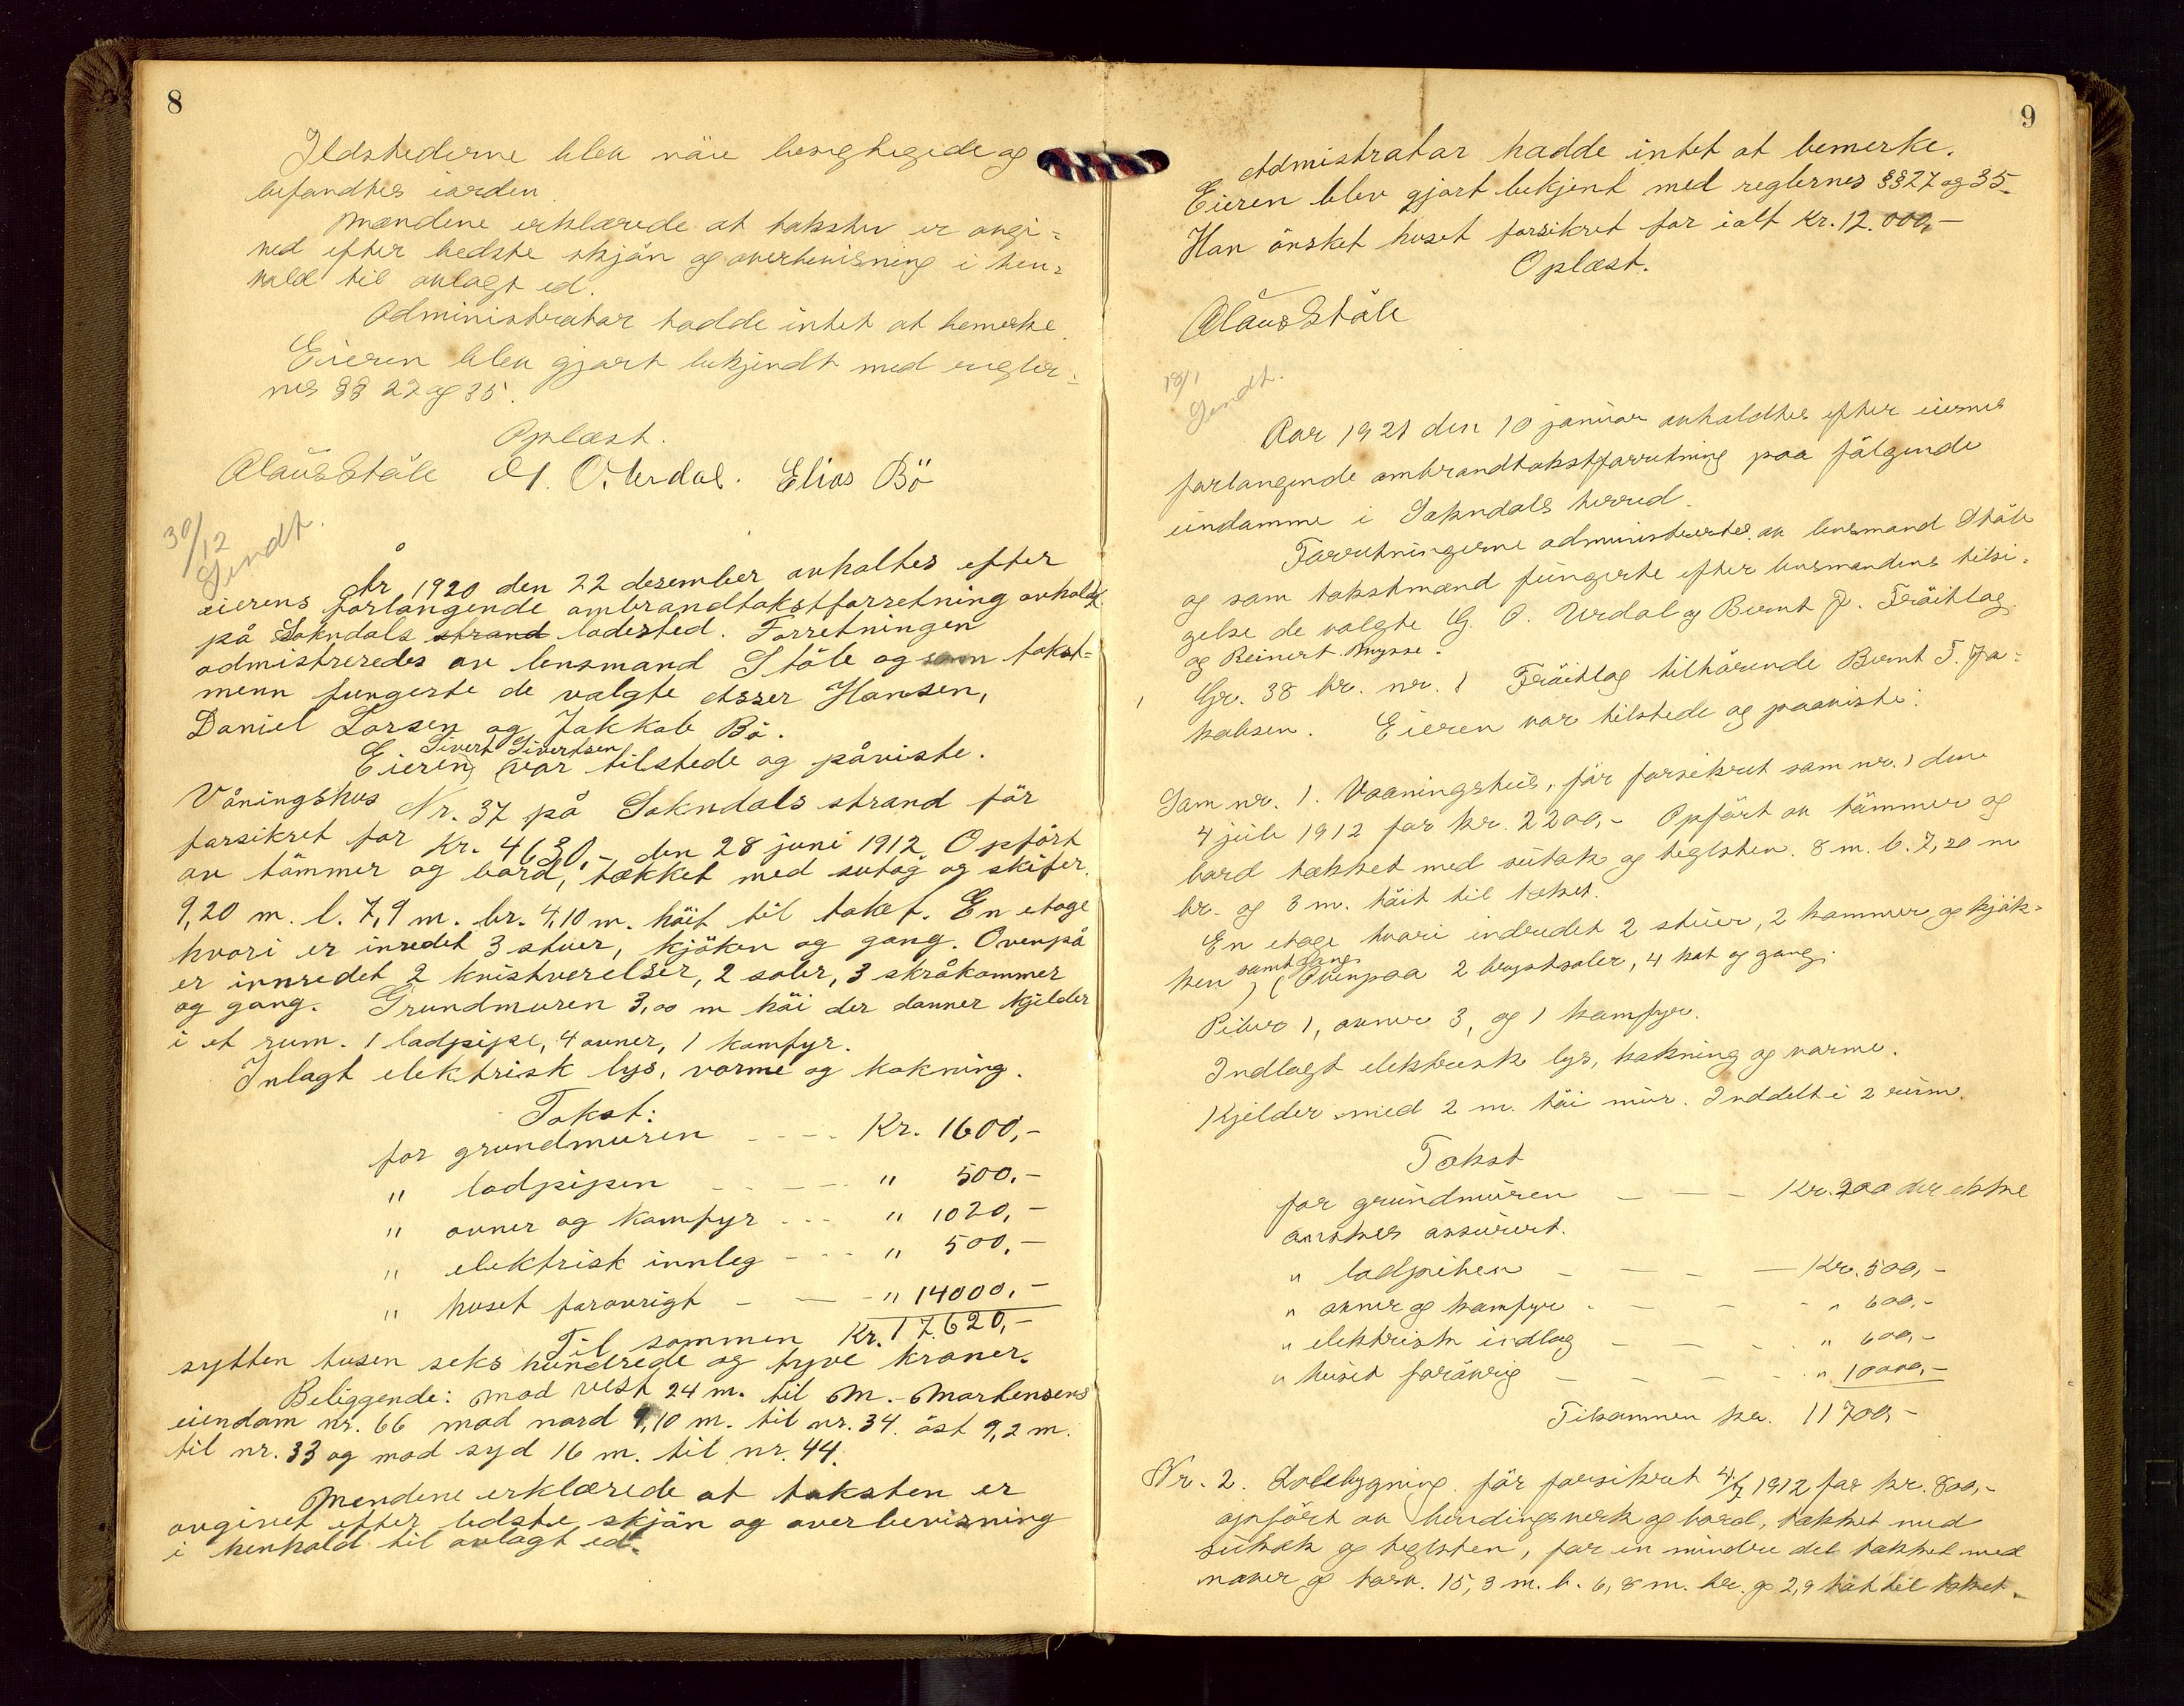 8
Ildstederne blev nöie besigtigede og
befandtes iorden.
Mændene erklærede at taksten er avgi=
ved efter bedste skjön og overbevisning i hen=
hold til avlagt ed.
Administrator hadde intet at bemerke.
Eieren blev gjort bekjendt med regler=
nes §§ 27 og 35.
Oplæst.
Claus Ståle O. Urdal. Elias Bö
30/12
Sendt.
År 1920 den 22 desember avholtes efter
eierens forlangende ombrandtakstforretning avholdt
på Sokndals strand ladested. Forretningen
admistreredes av lensmand Ståle og som takst=
menn fungerte de valgte Asser Hansen,
Daniel Larsen og Jakkob Bö.
Sivert Sivertsen
Eieren var tilstede og påviste.
Våningshus Nr. 37 på Sokndals strand för
forsikret for Kr. 4630,- den 28 juni 1912 Opfört
av tömmer og bord, tækket med sutag og skifer.
9,20 m. l. 7,9 m. br. 4,10 m. höit til taket. En etage
hvori er inredet 3 stuer, kjöken og gang. Ovenpå
er innredet 2 kvistverelser, 2 saler, 3 skråkammer
og gang. Grundmuren 3,00 m höi der danner kjelder
i et rum. 1 ladpipe, 4 ovner, 1 komfyr.
Inlagt elektrisk lys, varme og kokning.
Takst:
for grundmuren - - - - Kr. 1600,-
" ladpipen - - - - - " 500,-
" ovner og komfyr - - - " 1020,-
" elektrisk innleg - - - " 500,-
" huset forövrigt - - - " 14000,-
Til sammen Kr. 17.620,-
sytten tusen seks hundrede og tyve kroner.
Beliggende: mod vest 24 m. til M. Martensens
eiendom nr. 66 mod nord 9,10 m. til nr. 34. öst 9,2 m.
til nr. 33 og mod syd 16 m. til nr. 44.
Mendene erklærede at taksten er
avgivet efter bedste skjön og overbevisning
i henhold til avlagt ed.
9
Admistrator hadde intet at bemerke.
Eieren blev gjort bekjent med reglernes §§ 27 og 35.
Han önsket huset forsikret for ialt Kr. 12.000,-
Oplæst.
Claus Ståle
18/1
Sendt.
Aar 1921 den 10 januar avholdtes efter eiernes
forlangende ombrandtakstforretning paa fölgende
eiendomme i Sokndals herred.
Forretningerne administrertes av lensmand Ståle
og som takstmænd fungerte efter lensmandens tilsi=
gelse de valgte G. O. Urdal og Bernt J. Fröitlog.
og Reinert Mysse.
1 Gr. 38 br. nr. 1 Fröitlog tilhörende Bernt T. Ja=
kobsen. Eieren var tilstede og paaviste:
Som nr. 1. Vaaningshus, för forsikret som nr. 1 den
4 juli 1912 for kr. 2200,- Opfört av tömmer og
bord tækket med sutak og teglsten. 8 m. l. 7,20 m
br. og 3 m. höit til taket.
En etage hvori indredet 2 stuer, 2 kammer og kjök=
samt gang
ken, Ovenpaa 2 brystsaler, 4 kot og gang.
Piber 1, ovner 3, og 1 komfyr.
Indlagt elektrisk lys, kokning og varme.
Kjelder med 2 m. höi mur. Inddelt i 2 rum.
Takst
for grundmuren - - - Kr. 200 der ikke
önskes assurert.
" ladpiben - - - - Kr. 500,-
" ovner og komfyr - - - " 600,-
" elektrisk indlag - - - " 600,-
" huset forövrig - - - - " 10000,-
Tilsammen kr. 11700,-
Nr. 2. Lödebygning för forsikret 4/7 1912 for kr. 800,-
opfört av bindingsverk og bord, tækket med
sutak og teglsten, for en mindre del tækket med
næver og torv. 15,3 m. l. 6,8 m. br. og 2,9 höit til taket.